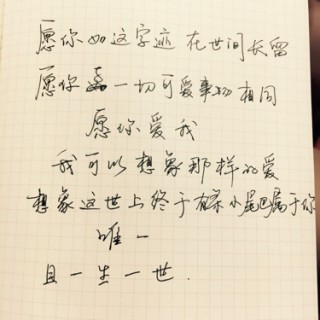 愿你如这字迹 在世间长留
愿你 一切可爱事物相同
愿你爱我
我可以想象那样的爱
想象这世上终于有条小尾巴属于你
唯一
且一生一世.